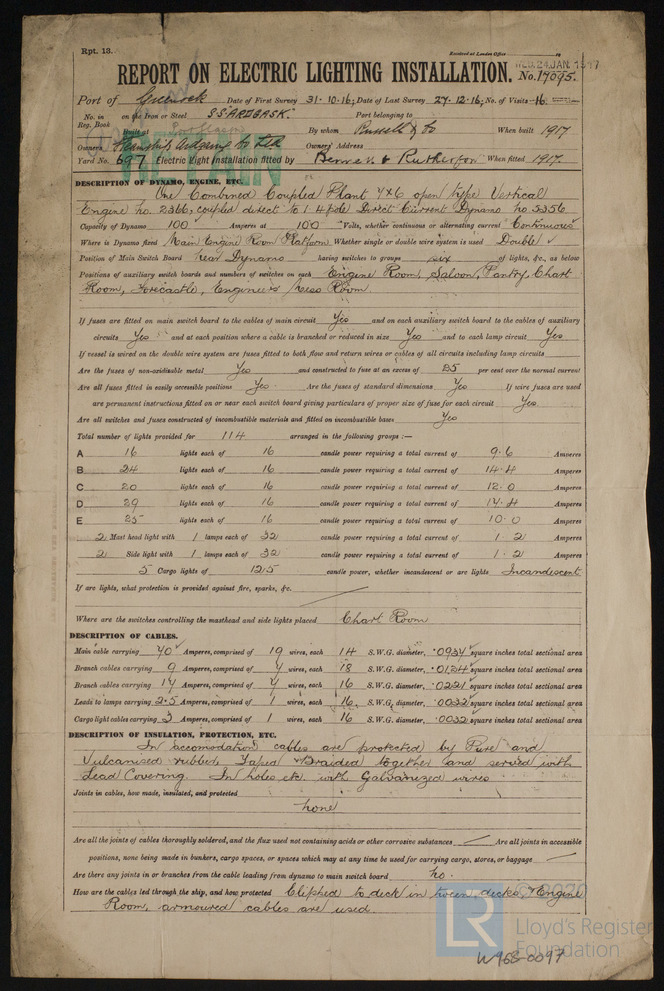 Rpt. 13.
Received at London Office
WED. 24 JAN. 1917
REPORT ON ELECTRIC LIGHTING INSTALLATION. No. 17095.
Port of Greenock Date of First Survey 31.10.16; Date of Last Survey 27.12.16; No. of Visits 16
No. in Reg. Book on the Iron or Steel S.S. ARDGASK. Port belonging to
Built at Port Glasgow By whom Russell & Co When built 1917
Owners Steamship Ardgask Co Ltd Owners' Address
Yard No. 697 Electric Light Installation fitted by & Rutherford When fitted 1917.
RETAIN
DESCRIPTION OF DYNAMO, ENGINE, ETC.
One Combined Coupled Plant 4x6 open type Vertical
Engine No. 2366, coupled direct to 1 4 pole Direct Current Dynamo No 5356
Capacity of Dynamo 100 Amperes at 100 Volts, whether continuous or alternating current Continuous
Where is Dynamo fixed Main Engine Room Platform Whether single or double wire system is used Double
Position of Main Switch Board near Dynamo having switches to groups six of lights, &c., as below
Positions of auxiliary switch boards and numbers of switches on each Engine Room, Saloon, Pantry, Chart
Room, Forecastle, Engineers Mess Room.
If fuses are fitted on main switch board to the cables of main circuit Yes and on each auxiliary switch board to the cables of auxiliary
circuits Yes and at each position where a cable is branched or reduced in size Yes and to each lamp circuit Yes
If vessel is wired on the double wire system are fuses fitted to both flow and return wires or cables of all circuits including lamp circuits
Are the fuses of non-oxidizable metal Yes and constructed to fuse at an excess of 25 per cent over the normal current
Are all fuses fitted in easily accessible positions Yes Are the fuses of standard dimensions Yes If wire fuses are used
are permanent instructions fitted on or near each switch board giving particulars of proper size of fuse for each circuit Yes
Are all switches and fuses constructed of incombustible materials and fitted on incombustible bases Yes
Total number of lights provided for 114 arranged in the following groups :—
A 16 lights each of 16 candle power requiring a total current of 9.6 Amperes
B 24 lights each of 16 candle power requiring a total current of 14.4 Amperes
C 20 lights each of 16 candle power requiring a total current of 12.0 Amperes
D 29 lights each of 16 candle power requiring a total current of 14.4 Amperes
E 25 lights each of 16 candle power requiring a total current of 10.0 Amperes
2 Mast head light with 1 lamps each of 32 candle power requiring a total current of 1.2 Amperes
2 Side light with 1 lamps each of 32 candle power requiring a total current of 1.2 Amperes
5 Cargo lights of 125 candle power, whether incandescent or arc lights Incandescent
If arc lights, what protection is provided against fire, sparks, &c.
Where are the switches controlling the masthead and side lights placed Chart Room
DESCRIPTION OF CABLES.
Main cable carrying 40 Amperes, comprised of 19 wires, each 14 S.W.G. diameter, .0934 square inches total sectional area
Branch cables carrying 9 Amperes, comprised of 4 wires, each 18 S.W.G. diameter, .0124 square inches total sectional area
Branch cables carrying 14 Amperes, comprised of 4 wires, each 16 S.W.G. diameter, .0221 square inches total sectional area
Leads to lamps carrying 2.5 Amperes, comprised of 1 wires, each 16 S.W.G. diameter, .0032 square inches total sectional area
Cargo light cables carrying 3 Amperes, comprised of 1 wires, each 16 S.W.G. diameter, .0032 square inches total sectional area
DESCRIPTION OF INSULATION, PROTECTION, ETC.
In accomodation cables are protected by Pure and
Vulcanised rubber, Taped & Braided together and served with
Lead Covering. In holes etc. with Galvanized wires
Joints in cables, how made, insulated, and protected
none
Are all the joints of cables thoroughly soldered, and the flux used not containing acids or other corrosive substances — Are all joints in accessible
positions, none being made in bunkers, cargo spaces, or spaces which may at any time be used for carrying cargo, stores, or baggage —
Are there any joints in or branches from the cable leading from dynamo to main switch board no.
How are the cables led through the ship, and how protected Clipped to deck in tween decks, & Engine
Room, armoured cables are used.
© 2020
LR
Lloyd's Register
Foundation
W968-0097